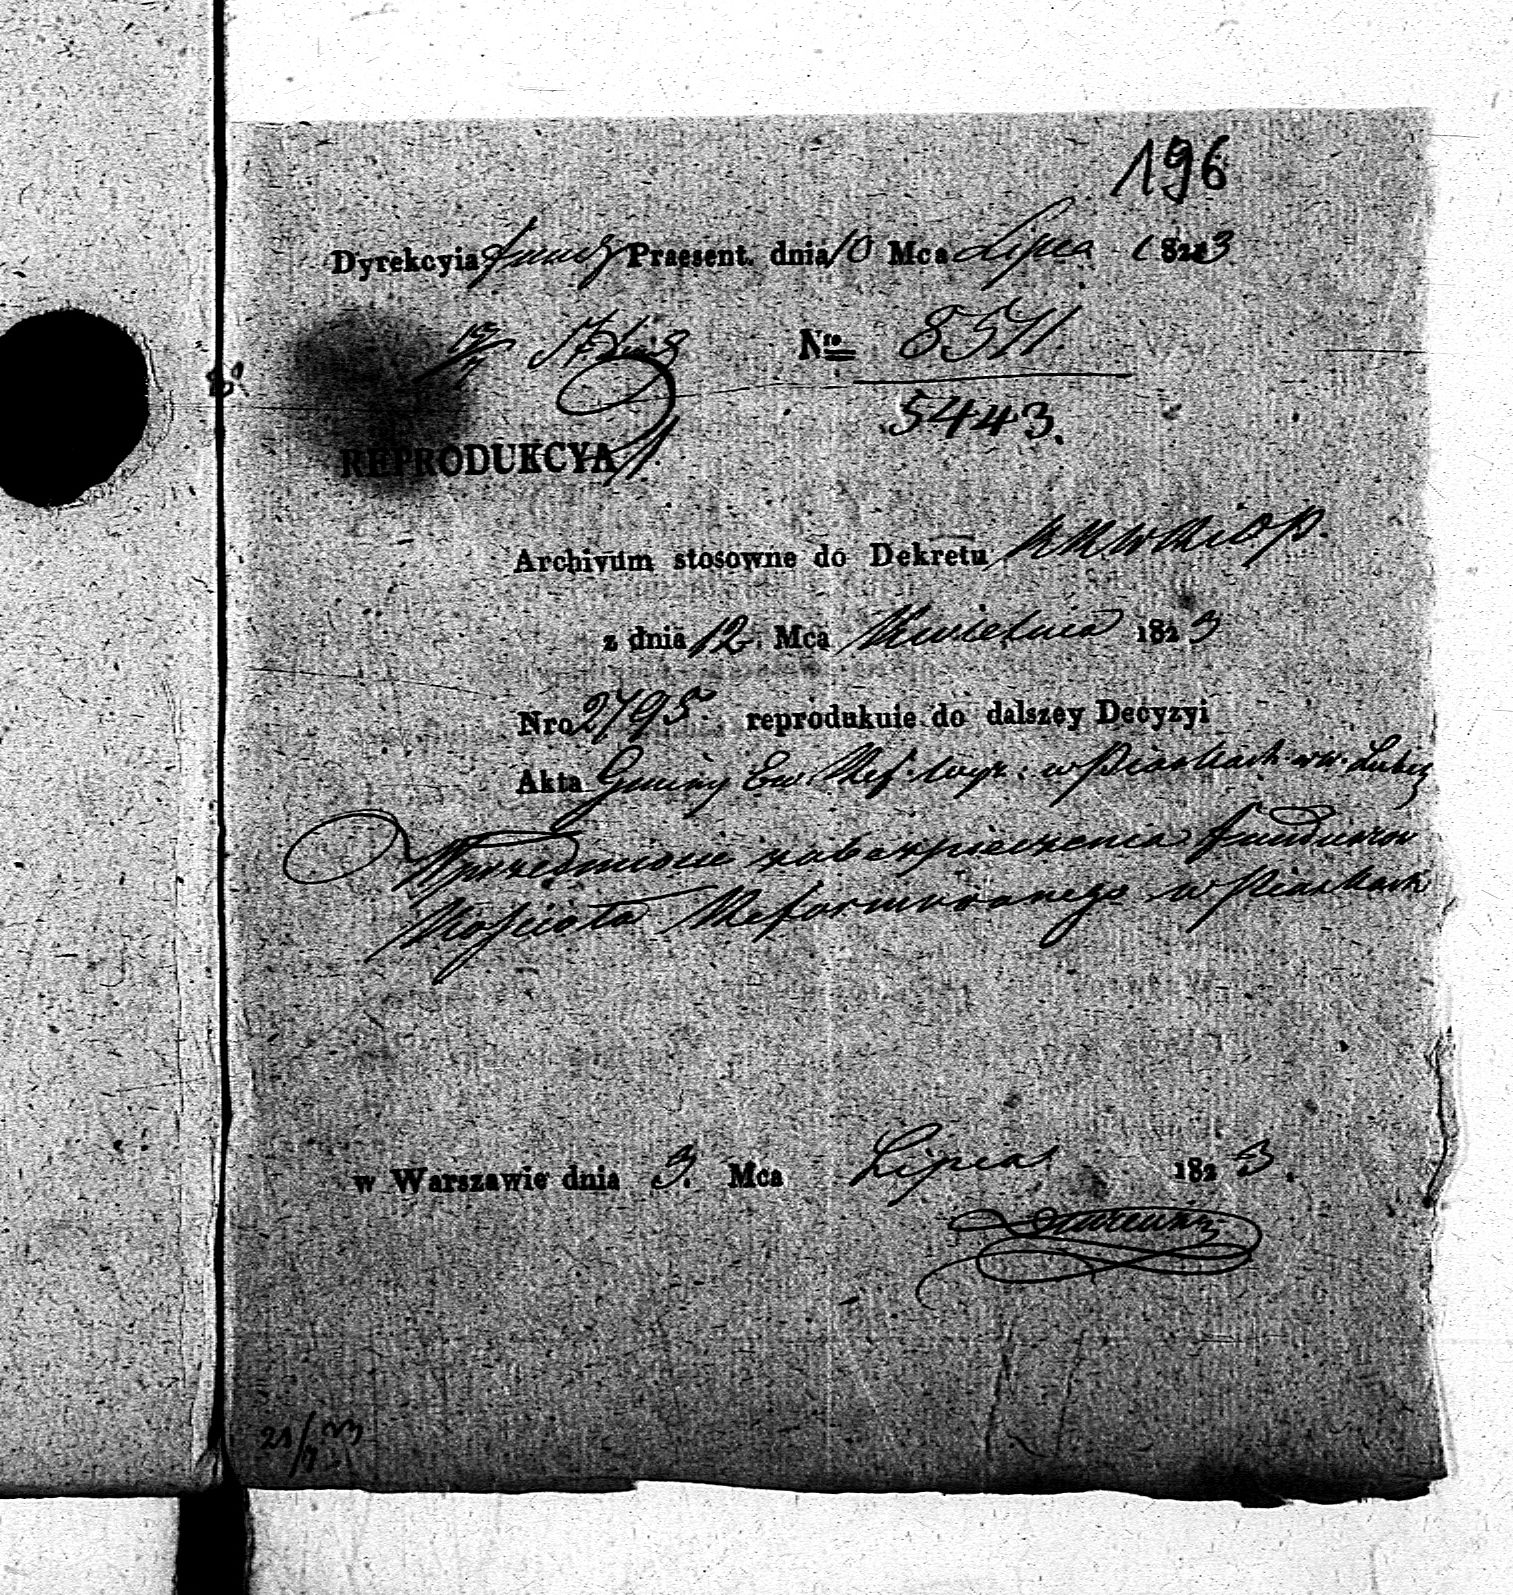 196
Dyrekcyia fundz Praesent. dnia 10 Mca Lipca 1823
Nro 8511.
5443.
REPRODUKCYA
Archivum stosowne do Dekretu KRWRiOP.
z dnia 12. Mca Kwietnia 1823
Nro 2795. reprodukuie do dalszey Decyzyi
Akta Gminy Ew. Ref. wyz: w Piaskach w w. Lubez
W przedmiocie zabezpieczenia funduszów
Kościoła Reformowanego w Piaskach
w Warszawie dnia 3. Mca Lipca 1823.
21/7 23